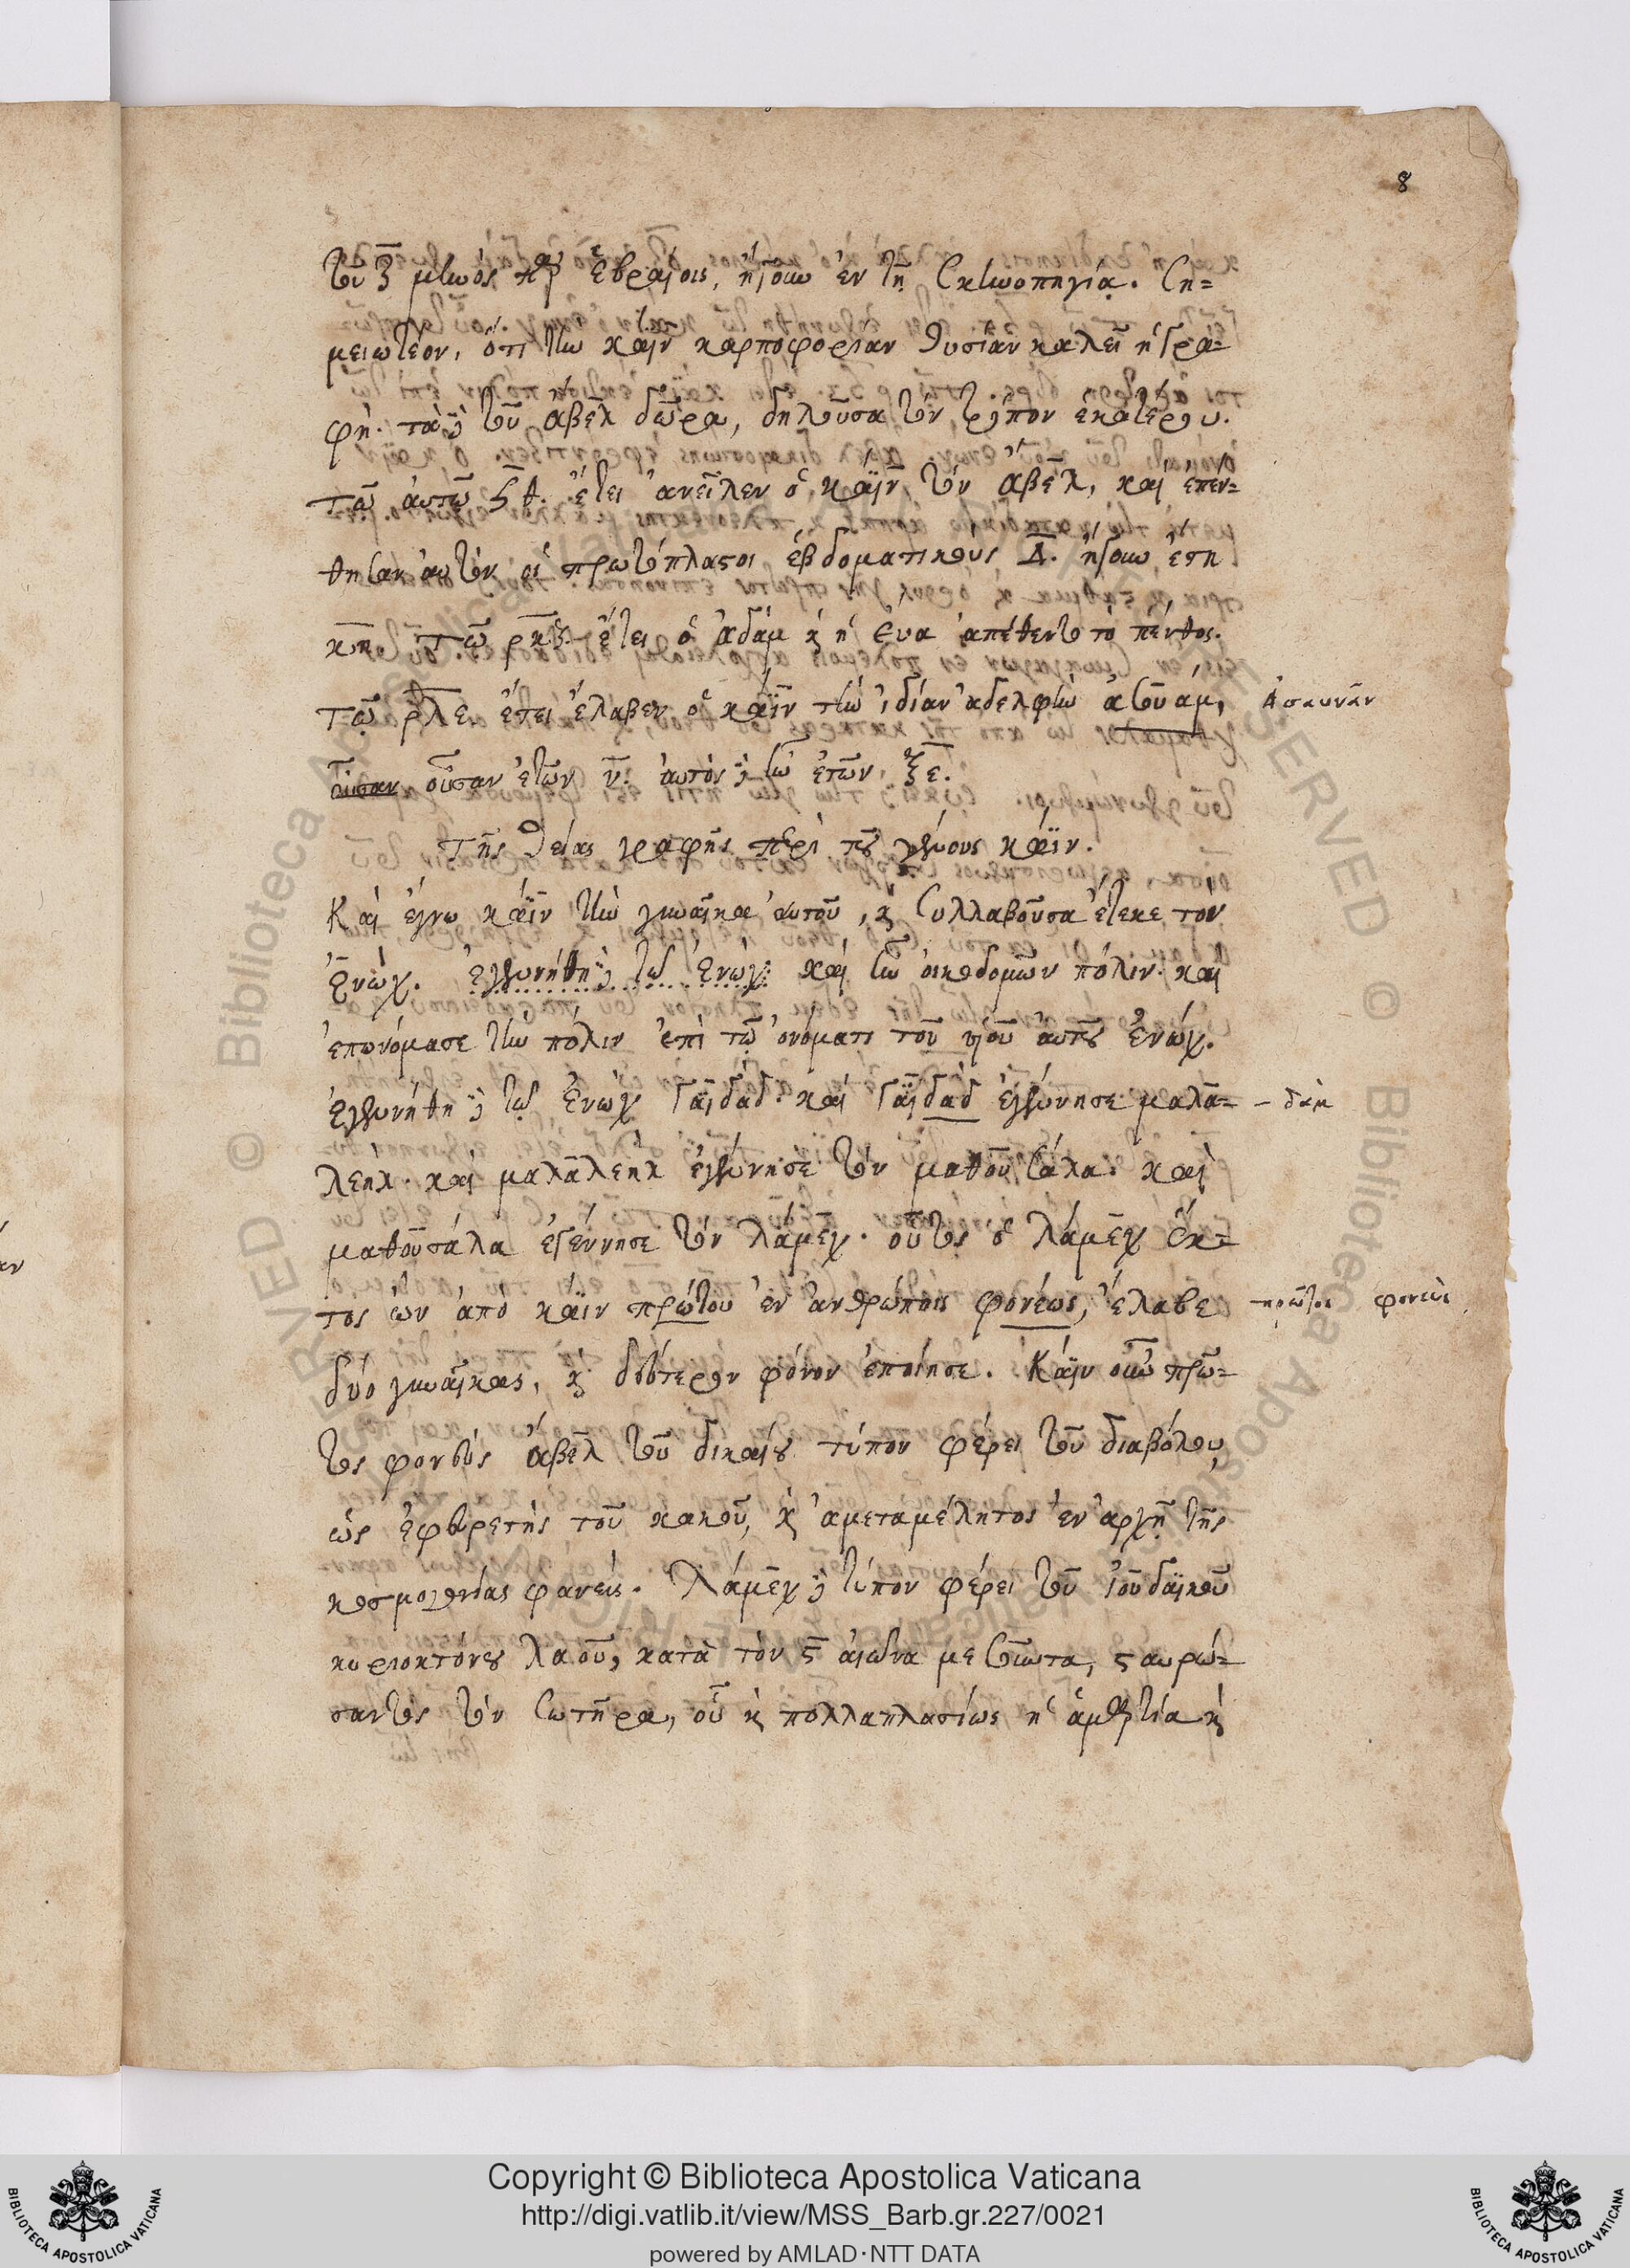 8
τοῦ ζ̄ μηνὸς παρ' Ἑβραίοις, ἤγουν ἐν τῇ Σκηνοπηγίᾳ. Ση=
μειωτέον, ὅτι τὴν κάϊν καρποφορίαν θυσίαν καλεῖ ἡ Γρα=
φή. τὰ δὲ τοῦ ἄβελ δῶρα, δηλοῦσα τὸν τρόπον ἑκατέρου.
τῷ αὐτῷ ϟθ. ἔτει ἀνεῖλεν ὁ κάϊν τὸν ἄβελ, καὶ ἐπέν=
θησαν αὐτὸν οἱ πρωτόπλαστοι ἑβδοματικοὺς Δ. ἤγουν ἔτη
κη. τῷ ρκζ. ἔτει ὁ ἀδάμ κ ἡ Εὔα ἀπέθεντο τὸ πένθος.
τῷ ρλε ἔτει ἔλαβεν ὁ κάϊν τὴν ἰδίαν ἀδελφὴν ἀσουάμ, Ἀσαυνᾶν
οὖσαν οὖσαν ἐτῶν ν̄. αὐτὸν δὲ ἦν ἐτῶν ξε.
Τῆς θείας γραφῆς περὶ τοῦ γένους κάϊν.
Καὶ ἔγνω κάϊν τὴν γυναῖκα αὐτοῦ, κ συλλαβοῦσα ἔτεκε τον
Ἐνώχ. ἐγεννήθη δὲ τῷ Ἐνώχ: καὶ ἦν οἰκοδομῶν πόλιν. και
ἐπωνόμασε τὴν πόλιν ἐπὶ τῷ ὀνόματι τοῦ υἱοῦ αὐτοῦ Ἐνώχ.
ἐγεννήθη δὲ τῷ Ἐνώχ Γαϊδάδ. καὶ Γαϊδὰδ ἐγέννησε μαλα= - δὰμ
λεηλ. καὶ μαλαλεηλ ἐγέννησε τὸν μαθουσάλα. καὶ
μαθουσάλα ἐγέννησε τὸν λάμεχ. οὗτος ὁ λάμεχ ἕκ=
τος ὢν ἀπὸ κάϊν πρώτου ἐν ἀνθρώποις φονέως, ἔλαβε πρῶτος φονεὺς
δύο γυναῖκας, κ δεύτερον φόνον ἐποίησε. Κάϊν οὖν πρῶ=
τος φονεὺς ἄβελ τοῦ δικαίου τύπον φέρει τοῦ διαβόλου,
ὡς ἐφευρετὴς τοῦ κακοῦ, κ ἀμεταμέλητος ἐν ἀρχῇ τῆς
κοσμογενίας φανείς. Λάμεχ δὲ τύπον φέρει τοῦ Ἰουδαϊκοῦ
κυριοκτόνου λαοῦ, κατὰ τὸν ϛ̄ αἰῶνα μεσοῦντα, σταυρώ=
σαντος τὸν Σωτῆρα, οὗ κ πολλαπλασίως ἡ ἁμαρτία κ
Copyright © Biblioteca Apostolica Vaticana
http://digi.vatlib.it/view/MSS_Barb.gr.227/0021
powered by AMLAD·NTT DATA
BIBLIOTECA APOSTOLICA VATICANA
BIBLIOTECA APOSTOLICA VATICANA